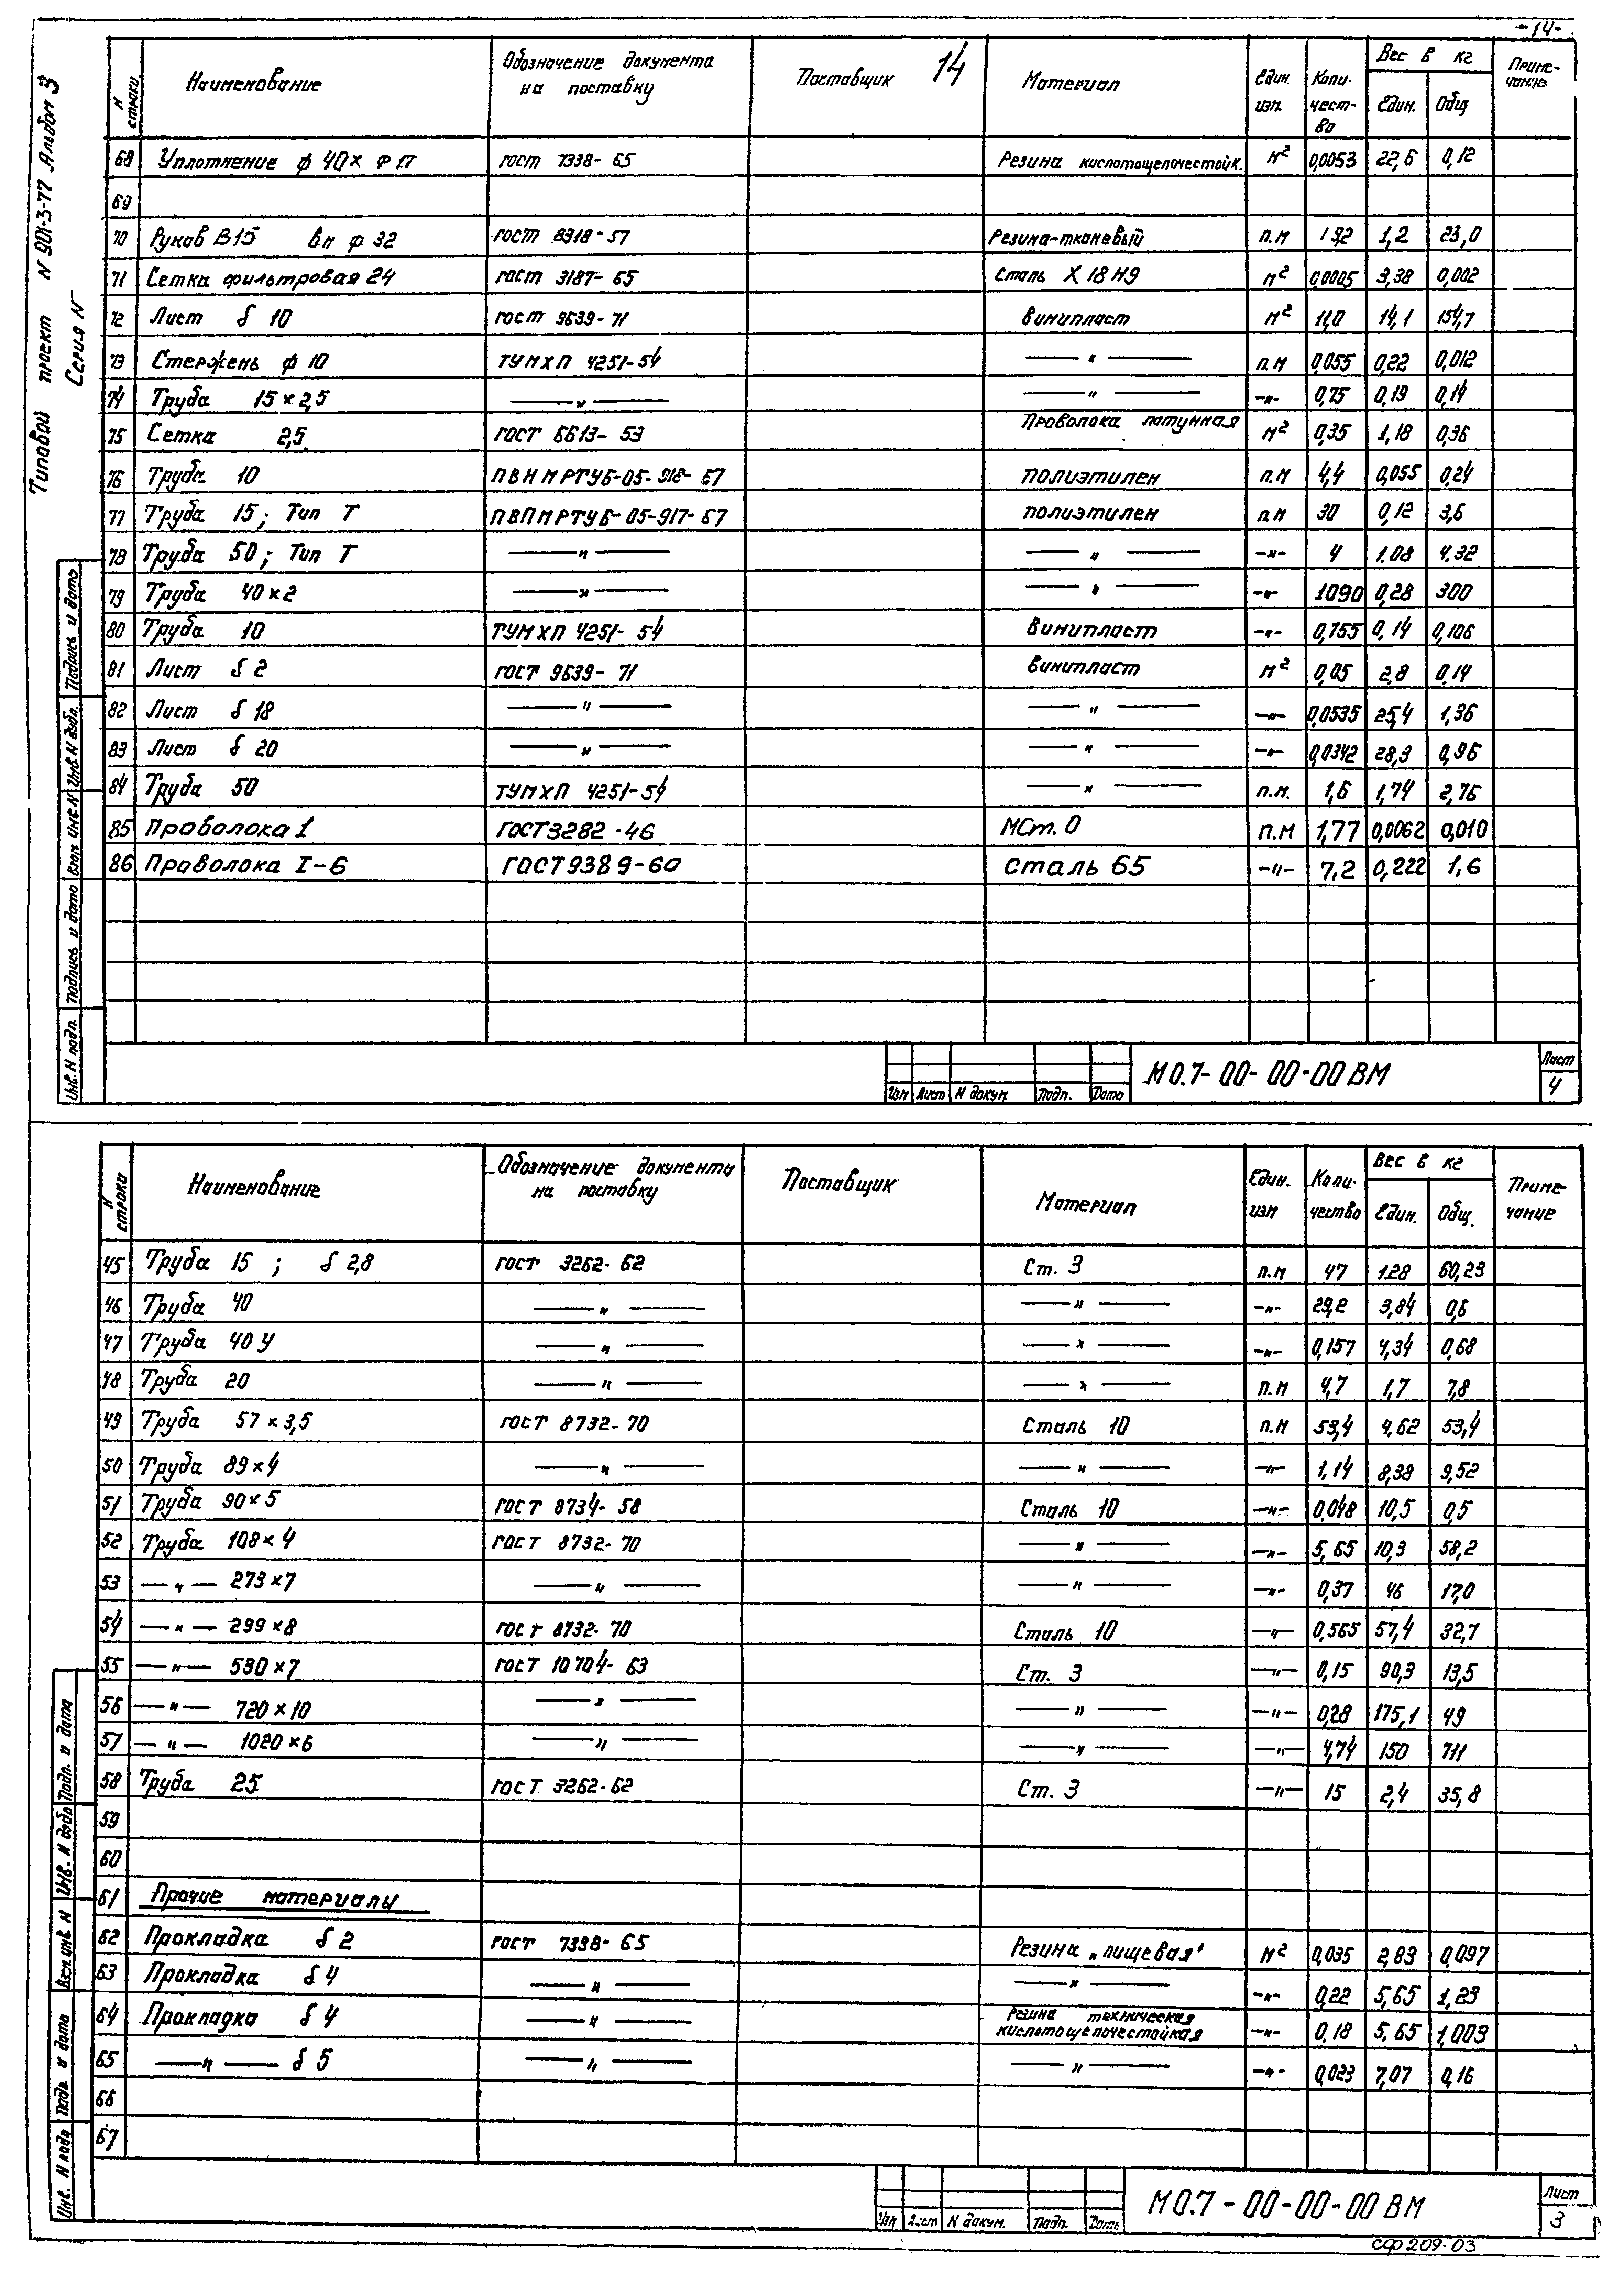 -14-
14
Типовой проект N 901-3-77 Альбом 3
Серия N
N строки | Наименование | Обозначение документа на поставку | Поставщик | Материал | Един. изм. | Коли-чест-во | Вес в кг Един. | Общ | Приме-чание
68 Уплотнение ф 40× ф 17 ГОСТ 7338-65 Резина кислотощелочестойк. м² 0,0053 22,6 0,12
69
70 Рукав В15 вн ф 32 ГОСТ 8318-57 Резина-тканевый п.м 19,2 1,2 23,0
71 Сетка фильтровая 24 ГОСТ 3187-65 Сталь Х18Н9 м² 0,0005 3,38 0,002
72 Лист δ 10 ГОСТ 9639-71 Винипласт м² 11,0 14,1 154,7
73 Стержень ф 10 ТУМХП 4251-54 —〃— п.м 0,055 0,22 0,012
74 Труба 15×2,5 —〃— —〃— -〃- 0,75 0,19 0,14
75 Сетка 2,5 ГОСТ 6613-53 Проволока латунная м² 0,35 1,18 0,36
76 Труба 10 ПВН МРТУ6-05-918-67 полиэтилен п.м 4,4 0,055 0,24
77 Труба 15; Тип Т ПВП МРТУ6-05-917-67 полиэтилен п.м 30 0,12 3,6
78 Труба 50; Тип Т —〃— —〃— -〃- 4 1.08 4.32
79 Труба 40×2 —〃— —〃— -〃- 1090 0,28 300
80 Труба 10 ТУМХП 4251-54 Винипласт -〃- 0,755 0,14 0,106
81 Лист δ 2 ГОСТ 9639-71 Винипласт м² 0,05 2,8 0,14
82 Лист δ 18 —〃— —〃— -〃- 0,0535 25,4 1,36
83 Лист δ 20 —〃— —〃— -〃- 0,0342 28,3 0,96
84 Труба 50 ТУМХП 4251-54 —〃— п.м. 1,6 1,74 2,76
85 Проволока 1 ГОСТ3282-46 МСт.0 п.м 1,77 0,0062 0,010
86 Проволока I-6 ГОСТ9389-60 Сталь 65 -〃- 7,2 0,222 1,6
Инв. N подл. Подпись и дата Взам инв N Инв. N дубл. Подпись и дата
Изм Лист N докум Подп. Дата
М0.7-00-00-00ВМ
Лист
4
N строки | Наименование | Обозначение документа на поставку | Поставщик | Материал | Един. изм | Коли-чество | Вес в кг Един. | Общ. | Приме-чание
45 Труба 15; δ 2,8 ГОСТ 3262-62 Ст. 3 п.м 47 1.28 60,23
46 Труба 40 —〃— —〃— -〃- 29,2 3,84 0,6
47 Труба 40 У —〃— —〃— -〃- 0,157 4,34 0,68
48 Труба 20 —〃— —〃— п.м 4,7 1,7 7,8
49 Труба 57×3,5 ГОСТ 8732-70 Сталь 10 п.м 53,4 4,62 53,4
50 Труба 89×4 —〃— —〃— -〃- 1,14 8,38 9,52
51 Труба 90×5 ГОСТ 8734-58 Сталь 10 -〃- 0,048 10,5 0,5
52 Труба 108×4 ГОСТ 8732-70 —〃— -〃- 5,65 10,3 58,2
53 —〃— 273×7 —〃— —〃— -〃- 0,37 46 17,0
54 —〃— 299×8 ГОСТ 8732-70 Сталь 10 -〃- 0,565 57,4 32,7
55 —〃— 530×7 ГОСТ 10704-63 Ст. 3 -〃- 0,15 90,3 13,5
56 —〃— 720×10 —〃— —〃— -〃- 0,28 175,1 49
57 —〃— 1020×6 —〃— —〃— -〃- 4,74 150 711
58 Труба 25 ГОСТ 3262-62 Ст. 3 -〃- 15 2,4 35,8
59
60
61 Прочие материалы
62 Прокладка δ 2 ГОСТ 7338-65 Резина „пищевая" м² 0,035 2,83 0,097
63 Прокладка δ 4 —〃— —〃— -〃- 0,22 5,65 1,23
64 Прокладка δ 4 —〃— Резина техническая кислотощелочестойкая -〃- 0,18 5,65 1,003
65 —〃— δ 5 —〃— —〃— -〃- 0,023 7,07 0,16
66
67
Инв. N подл Подп. и дата Взм. инв. N Инв. N дубл Подп. и дата
Изм Лист N докум. Подп. Дата
М0.7-00-00-00ВМ
Лист
3
сф 209-03